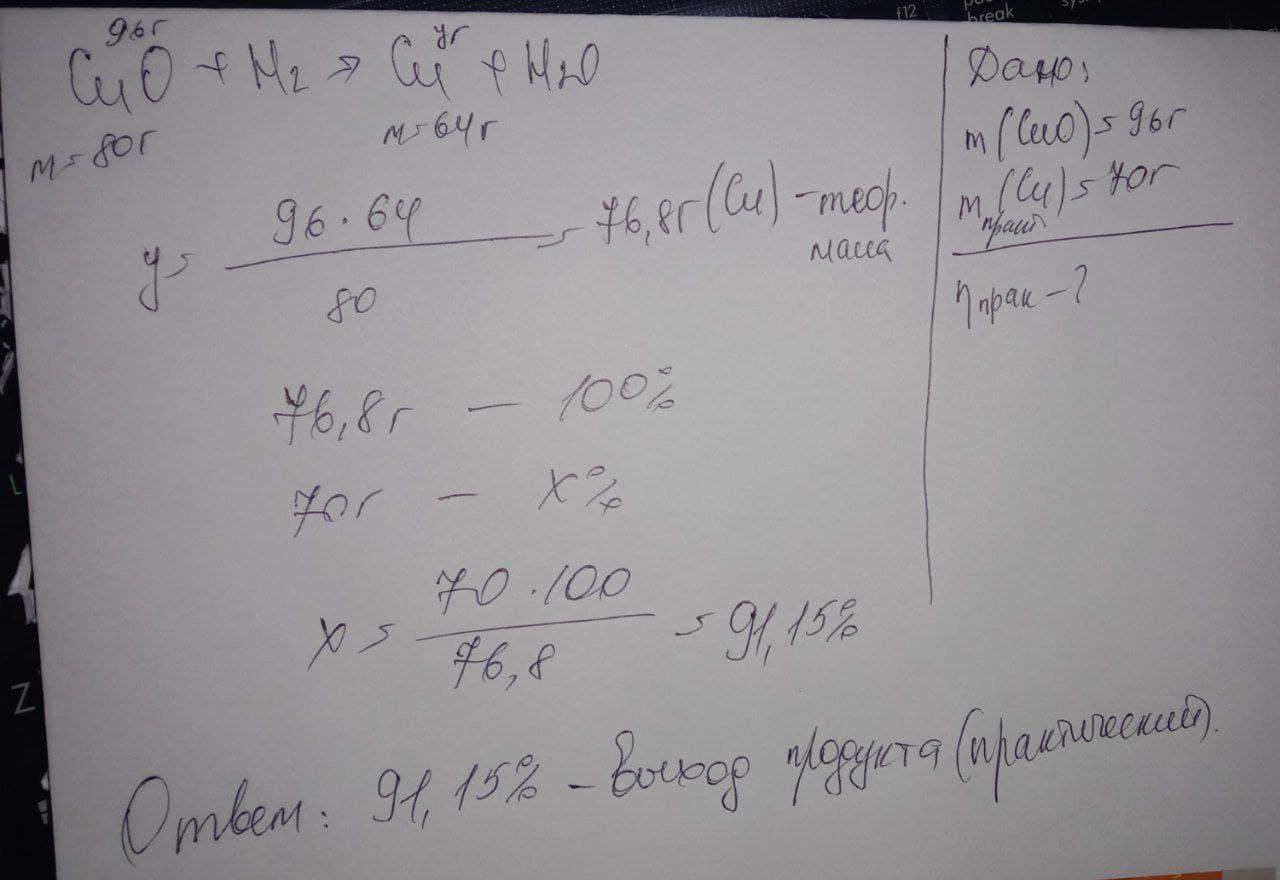 f12
break
96г yг
CuO + H2 → Cu + H2O
m = 80г m = 64г
y = 96 · 64 / 80 = 76,8г (Cu) - теор. масса
76,8г — 100%
70г — x%
x = 70 · 100 / 76,8 = 91,15%
Ответ: 91,15% - Выход продукта (практический).
Дано:
m (CuO) = 96г
m практ (Cu) = 70г
η прак - ?
L
Z